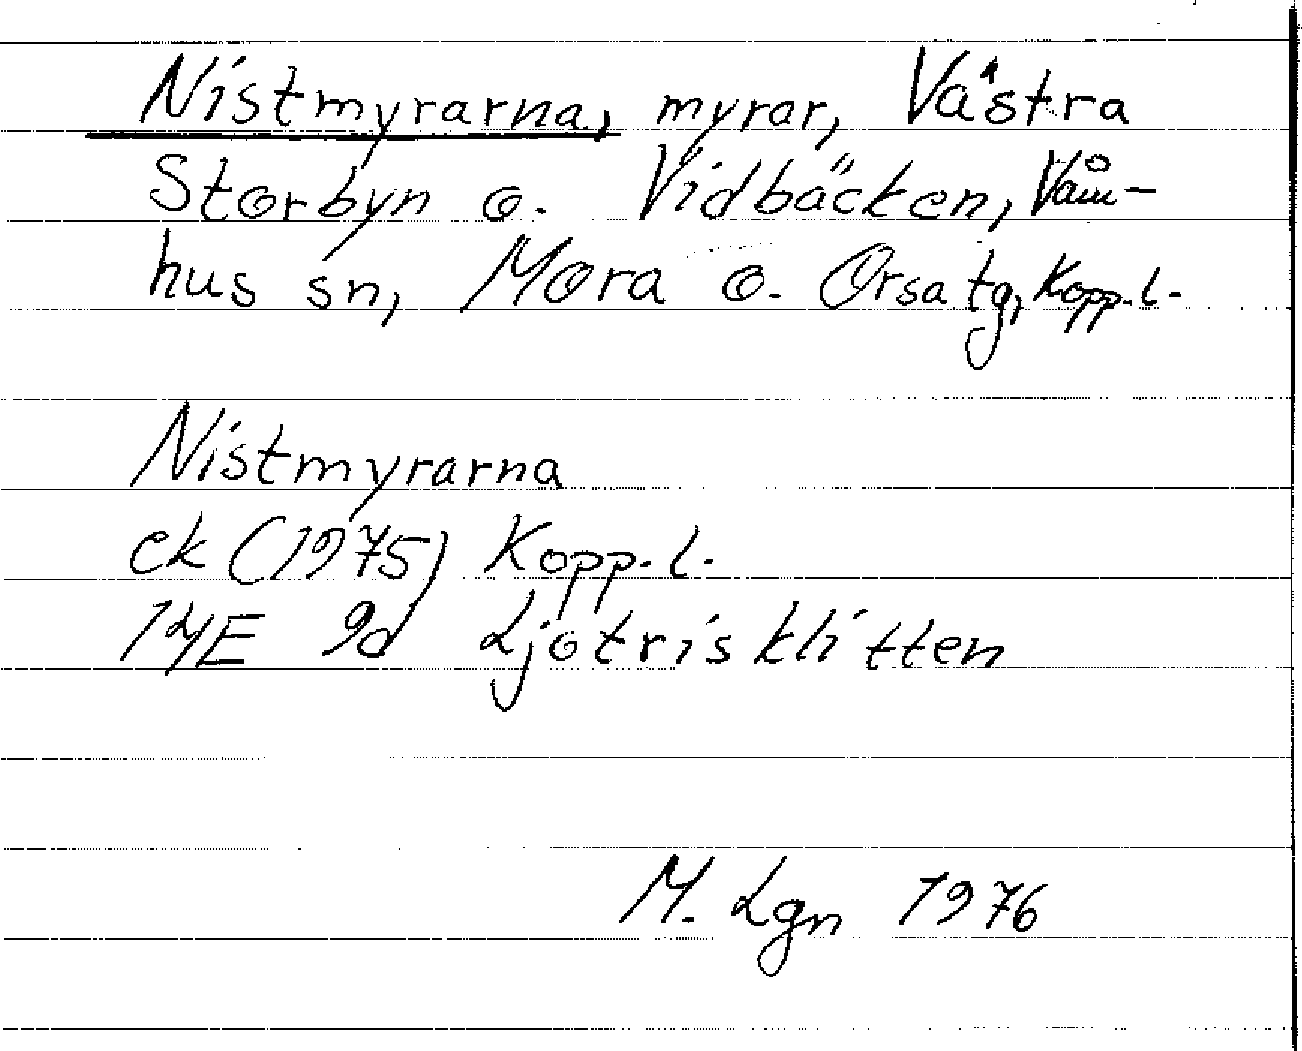 Nistmyrarna, myrar, Västra
Storbyn o. Vidbäcken, Våm-
hus sn, Mora o. Orsa tg, Kopp. l.
Nistmyrarna
ek (1975) Kopp. l.
14E 9d Ljotrisklitten
M. Lgn 1976